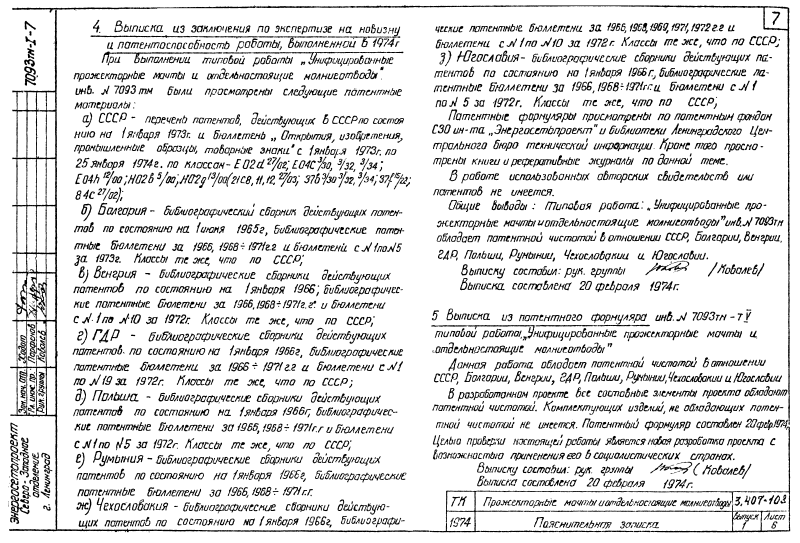 7
7093тм-I-7
4. Выписка из заключения по экспертизе на новизну
и патентоспособность работы, выполненной в 1974г
При выполнении типовой работы „Унифицированные
прожекторные мачты и отдельностоящие молниеотводы"
инв. N 7093 тм были просмотрены следующие патентные
материалы:
а) СССР - перечень патентов, действующих в СССР по состоя
нию на 1 января 1973г. и бюллетень „ Открытия, изобретения,
промышленные образцы, товарные знаки" с 1 января 1973г. по
25 января 1974г. по классам - E02d 27/02; E04C 3/30, 3/32, 3/34;
E04h 12/00; H02б 5/00; H02g 13/00 (21c8, 11, 12, 27/03; 37b 3/30 3/32, 3/34; 37f 15/12;
84c 27/02);
б) Болгария - библиографический сборник действующих патен-
тов по состоянию на 1 июня 1965г, библиографические патент-
тные бюллетени за 1966, 1968÷1971г.г и бюллетени с N1 по N5
за 1973г. Классы те же, что по СССР;
в) Венгрия - библиографические сборники действующих
патентов по состоянию на 1 января 1966; библиографичес-
кие патентные бюлетени за 1966, 1968÷1971г.г. и бюллетени
с N.1 по N10 за 1972г. Классы те же, что по СССР;
г) ГДР - библиографические сборники действующих
патентов. по состоянию на 1 января 1966г, библиографические
патентные бюллетени за 1966 ÷ 1971 г.г и бюллетени с N1
по N19 за 1972г. Классы те же, что по СССР;
д) Польша - библиографические сборники действующих
патентов по состоянию на 1 января 1966г, библиографичес-
кие патентные бюллетени за 1966, 1968÷1971г.г и бюллетени
с N1 по N5 за 1972г. Классы те же, что по СССР;
е) Румыния - библиографические сборники действующих
патентов по состоянию на 1 января 1966г, библиографические
патентные бюллетени за 1966, 1968÷1971г.г.
ж) Чехословакия - библиографические сборники действую-
щих патентов по состоянию на 1 января 1966г, библиографи-
ческие патентные бюллетени за 1966, 1968, 1969, 1971, 1972г.г и
бюллетени с N1 по N10 за 1972г. Классы те же, что по СССР;
з) Югославия - библиографические сборники действующих па-
тентов по состоянию на 1 января 1966г, библиографические па-
тентные бюллетени за 1966, 1968÷1971г.г. и бюллетени с N1
по N5 за 1972г. Классы те же, что по СССР;
Патентные формуляры просмотрены по патентным фондам
СЗО ин-та „Энергосетьпроект" и библиотеки Ленинградского Цен-
трального бюро технической информации. Кроме того просмо-
трены книги и реферативные журналы по данной теме.
В работе использованных авторских свидетельств или
патентов не имеется.
Общие выводы: Типовая работа: „Унифицированные про-
жекторные мачты и отдельностоящие молниеотводы" инв. N 7093тм
обладает патентной чистотой в отношении СССР, Болгарии, Венгрии,
ГДР, Польши, Румынии, Чехословакии и Югославии.
Выписку составил: рук. группы /Ковалев/
Выписка составлена 20 февраля 1974г.
5 Выписка из патентного формуляра инв. N 7093тм - т V
типовой работы „Унифицированные прожекторные мачты и
отдельностоящие молниеотводы"
Данная работа обладает патентной чистотой в отношении
СССР, Болгарии, Венгрии, ГДР, Польши, Румынии, Чехословакии и Югославии
В разработанном проекте все составные элементы проекта обладают
патентной чистотой. Комплектующих изделий, не обладающих патен-
тной чистотой не имеется. Патентный формуляр составлен 20 февр 1974г.
Целью проверки настоящей работы является новая разработка проекта с
возможностью применения его в социалистических странах.
Выписку составил: рук. группы (Ковалев)
Выписка составлена 20 февраля 1974г.
ЭНЕРГОСЕТЬПРОЕКТ
Северо-Западное
отделение
г. Ленинград
Зам. нач. отд.
Гл. инж. пр.
Рук. группы Ковалев
ТК
1974
Прожекторные мачты и отдельностоящие молниеотводы
Пояснительная записка
3.407-108
Выпуск 1
Лист 6